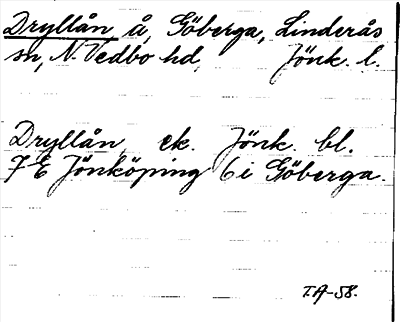 Dryllån å, Göberga, Linderås
sn, N. Vedbo hd, Jönk. l.
Dryllån ek. Jönk. bl.
7 E Jönköping 6 i Göberga.
T.A-58.